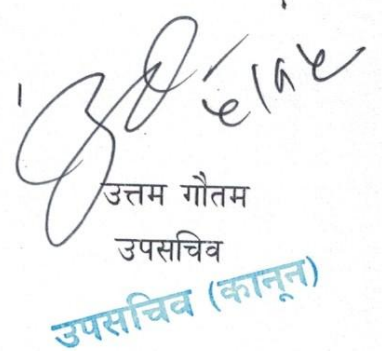 उत्तम गौतम
उपसचिव
उपसचिव (कानून)